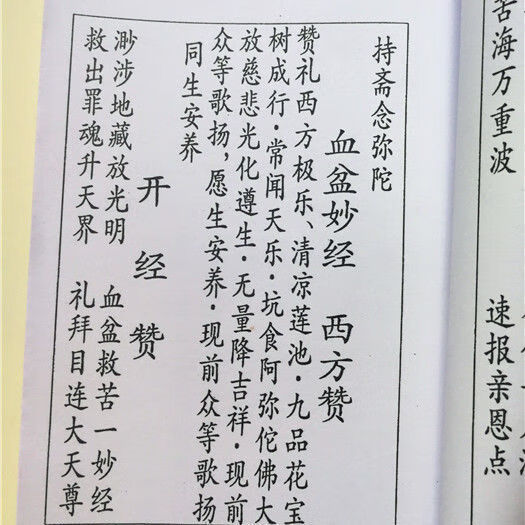 苦海万重波 速报亲恩点
持斋念弥陀
血盆妙经 西方赞
赞礼西方极乐、清凉莲池·九品花宝
树成行·常闻天乐·坑食阿弥佗佛大
放慈悲光化遵生·无量降吉祥·现前
众等歌扬，愿生安养·现前众等歌扬
同生安养
开经赞
渺涉地藏放光明 血盆救苦一妙经
救出罪魂升天界 礼拜目连大天尊